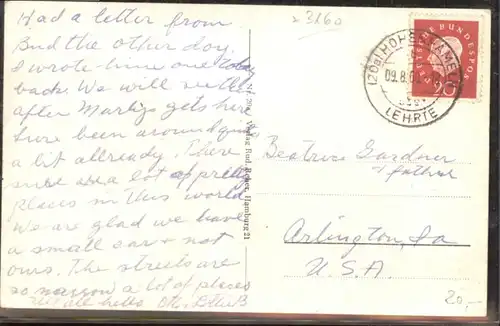 Had a letter from
Bud the other day.
I wrote him one today
back. We will
after gets here
Sure been around quite
a bit allready. There
sure are a lot of pretty
places in this world
We are glad we have
a small car + not
ours. The streets are
so narrow a lot of places
all hello
Verlag Rud. Reher, Hamburg 21
31.60
BUNDESPOST
20
(20a) HOHENHAMELN
09.8.6
LEHRTE
Beatrice Gardner
+ father
Arlington, Ia
U.S.A
20,-